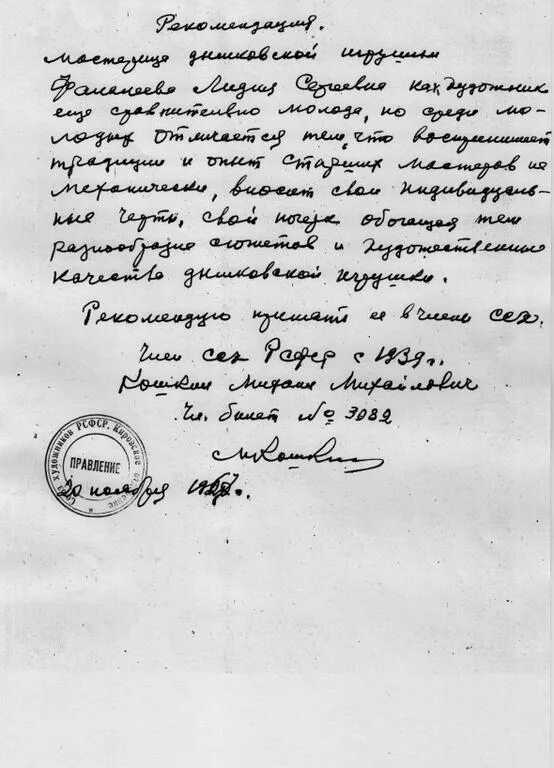 Рекомендация.
Мастерица дымковской игрушки
Фалалеева Лидия Сергеевна как художник
еще сравнительно молода, но среди мо-
лодых отличается тем, что воспринимает
традиции и опыт старших мастеров не
механически, вносит свои индивидуаль-
ные черты, свой почерк обогащая тем
разнообразие сюжетов и художественные
качества дымковской игрушки.
Рекомендую принять ее в члены ССХ.
Член ССХ РСФСР с 1939 г.
Кошкин Михаил Михайлович
Чл. билет № 3082
МКошкин
Союз художников РСФСР. Кировское отделение
ПРАВЛЕНИЕ
20 ноября г.